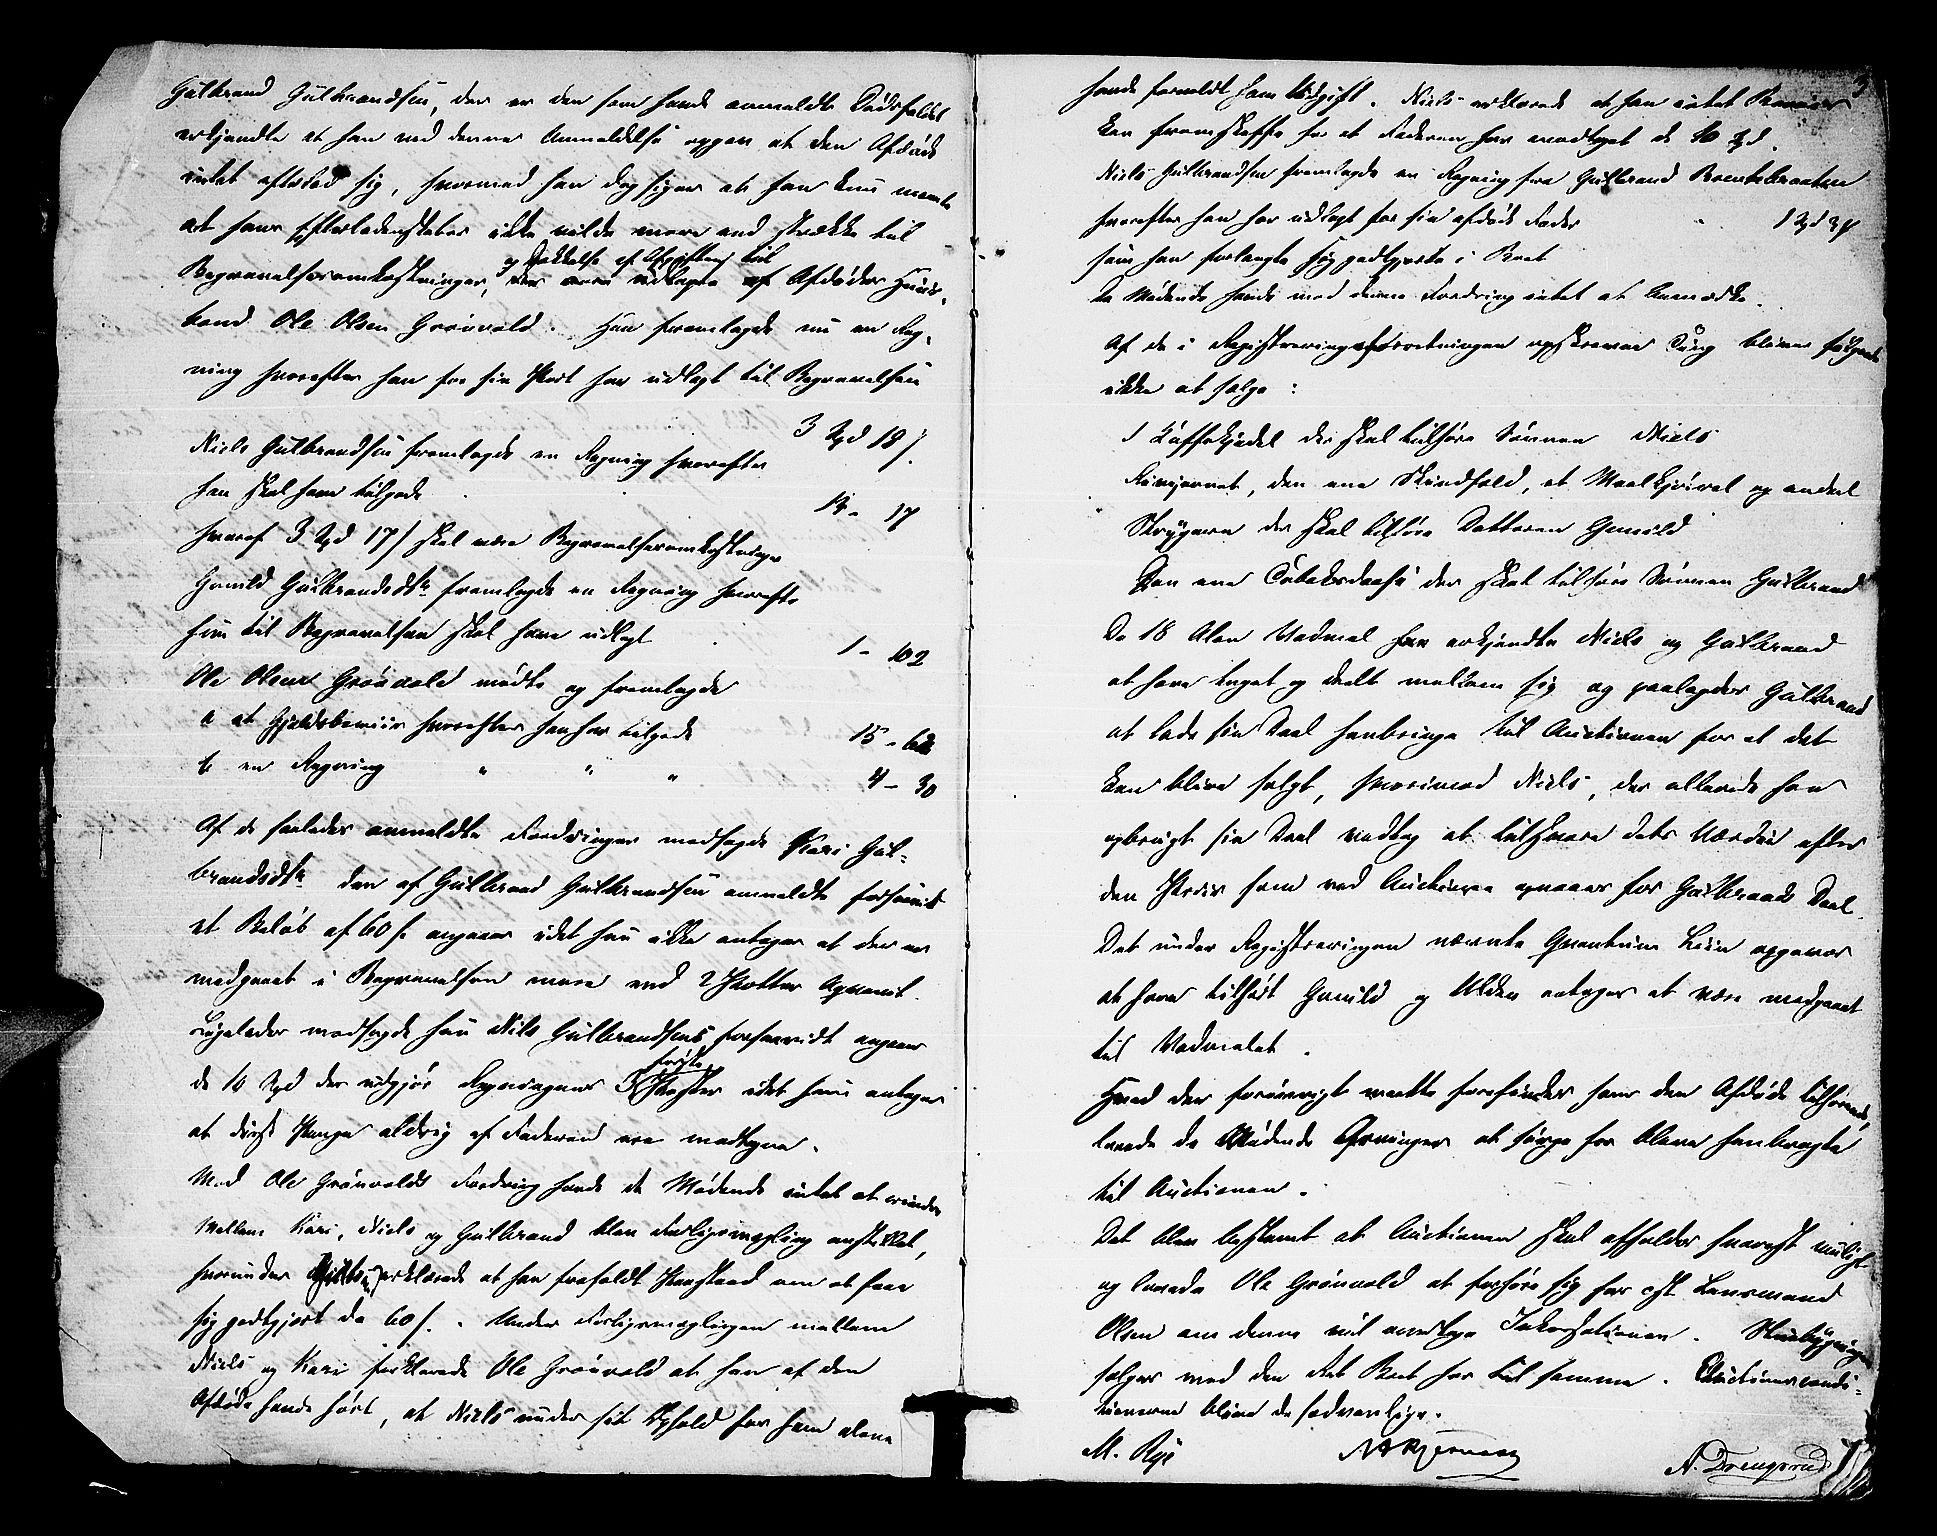 Gulbrand Gulbrandsen, der er den som havde anmeldt Dødsfaldet
erkjendte at han ved denne Anmeldelse opgav at den Afdøde
intet efterlod sig, hvormed han dog siger at han kun mente
at hans Efterladenskaber ikke vilde mere end strække til
og Dækkelse af Udgifterne til
Begravelsesomkostninger, der vare udlagte af Afdødes Huus-
bond Ole Olsen Grønvold. Han fremlagde nu en Reg-
ning hvorefter han for sin Part har udlagt til Begravelsen
3 Spd 18 s.
Niels Gulbrandsen fremlagde en Regning hvorefter
han skal have tilgode
14 - 17
hvoraf 3 Spd 17 s skal være Begravelsesomkostninger
Gunild Gulbrandsdtr fremlagde en Regning hvorefter
hun til Begravelsen skal have udlagt
1 - 102
Ole Olsen Grønvold mødte og fremlagde
a et Gjeldsbeviis hvorefter han har tilgode
15 - 62
b en Regning " " "
4 - 30
Af de saaledes anmeldte Fordringer modsagde Kari Gul-
brandsdtr den af Gulbrand Gulbrandsen anmeldte forsaavidt
et Beløb af 60 s. angaaer idet hun ikke antager at der er
medgaaet i Begravelsen mere end 2 Potter Aqvavit.
Ligeledes modsagde hun Niels Gulbrandsens forsaavidt angaaer
første
de 10 Spd der udgjør Regningens 3 Poster idet hun antager
at disse Penge aldrig af Faderen ere modtagne.
Mod Ole Grønvolds Fordring havde de Mødende intet at erindre
Mellem Kari, Niels og Gulbrand blev Forligsmægling anstillet,
hvorunder erklærede at han frafaldt Paastand om at faae
sig godtgjort de 60 s. Under Forligsmæglingen mellem
Niels og Kari forklarede Ole Grønvold at han af den
Afdøde havde hørt, at Niels under sit Ophold hos ham alene
havde forvoldt ham Udgift. Niels erklærede at han intet Beviis
kan fremskaffe for at Faderen har modtaget de 10 Spd.
Niels Gulbrandsen fremlagde en Regning fra Gulbrand Brentebraaten
hvorefter han har udlagt for sin afdøde Fader
1 Spd 3
som han forlangte sig godtgjorte i Boet
De Mødende havde mod denne Fordring intet at bemærke.
Af de i Registreringsforretningen opskrevne Ting bliver følgende
ikke at sælge:
1 Kaffekjedel der skal tilhøre Sønnen Niels
den ene Skindfeld, et og andet
der skal tilhøre Datteren Gunild
Den ene Tobaksdaase der skal tilhøre Sønnen Gulbrand
De 18 Alen Vadmel har erkjendte Niels og Gulbrand
at have taget og deelt mellem sig og paalagdes Gulbrand
at lade sin Deel henbringe til Auctionen for at det
kan blive solgt, hvorimod Niels, der allerede har
opbrugt sin Deel vedtog at tilsvare dets Værdie efter
den Priis som ved Auctionen opnaaes for Gulbrands Deel.
Det under Registreringen nævnte Qvantum Liin opgaves
at have tilhørt Gunild og Ulden antages at være medgaaet
til Vadmelet.
Hvad der forøvrigt maatte forefindes som den Afdøde tilhørende,
lovede de Mødende Arvinger at sørge for bleve henbragte
til Auctionen.
Det blev bestemt at Auctionen skal afholdes snarest muligt
og lovede Ole Grønvold at forhøre sig hos cst Lensmand
Olsen om denne vil overtage Incassationen.
sælges med den Ret Boet har til samme. Auctionscondi-
tionerne blive de sædvanlige.
M. Rye
A. Drengsrud